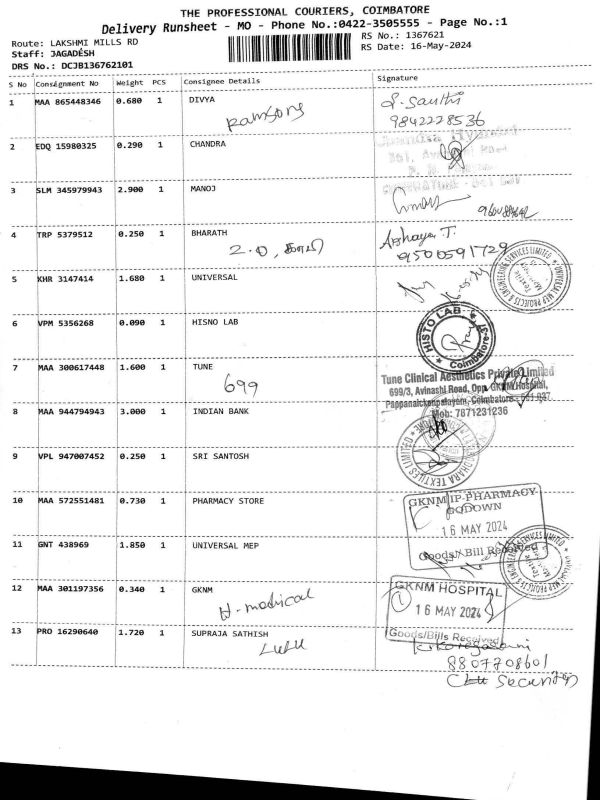 THE PROFESSIONAL COURIERS, COIMBATORE
Delivery Runsheet - MO - Phone No.:0422-3505555 - Page No.:1
Route: LAKSHMI MILLS RD
Staff: JAGADESH
DRS No.: DCJB136762101
RS No.: 1367621
RS Date: 16-May-2024
S No Consignment No Weight PCS Consignee Details Signature
1 MAA 865448346 0.680 1 DIVYA
Ramsons
9842228536
2 EDQ 15980325 0.290 1 CHANDRA
3 SLM 345979943 2.900 1 MANOJ
4 TRP 5379512 0.250 1 BHARATH
Abhaya T.
9500591729
5 KHR 3147414 1.680 1 UNIVERSAL
UNIVERSAL MEP PROJECTS & ENGINEERING SERVICES LIMITED
6 VPM 5356268 0.090 1 HISNO LAB
HISTO LAB
Coimbatore-37
7 MAA 300617448 1.600 1 TUNE
699
Tune Clinical Aesthetics Private Limited
699/3, Avinashi Road, Opp. GKNM Hospital,
Pappanaickenpalayam, Coimbatore - 641 037
Mob: 7871231236
8 MAA 944794943 3.000 1 INDIAN BANK
9 VPL 947007452 0.250 1 SRI SANTOSH
TEXTILES LIMITED
10 MAA 572551481 0.730 1 PHARMACY STORE
GKNM IP-PHARMACY
GODOWN
16 MAY 2024
Goods / Bill Received
11 GNT 438969 1.850 1 UNIVERSAL MEP
12 MAA 301197356 0.340 1 GKNM
H-medical
GKNM HOSPITAL
16 MAY 2024
Goods/Bills Received
13 PRO 16290640 1.720 1 SUPRAJA SATHISH
LULU
8807708601
Security